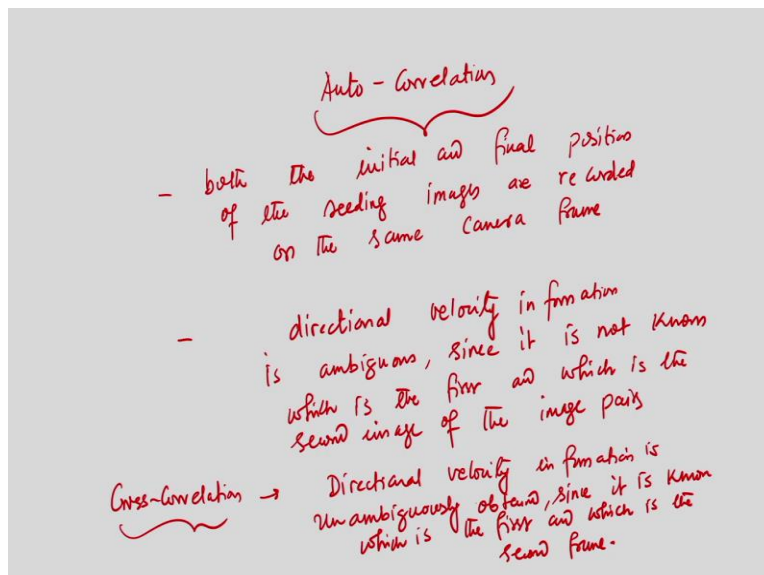 Auto - Correlation
- both the initial and final position
of the seeding images are recorded
on the same camera frame
- directional velocity information
is ambiguous, since it is not known
which is the first and which is the
second image of the image pairs
Cross-Correlation → Directional velocity information is
unambiguously obtained, since it is known
which is the first and which is the
second frame.